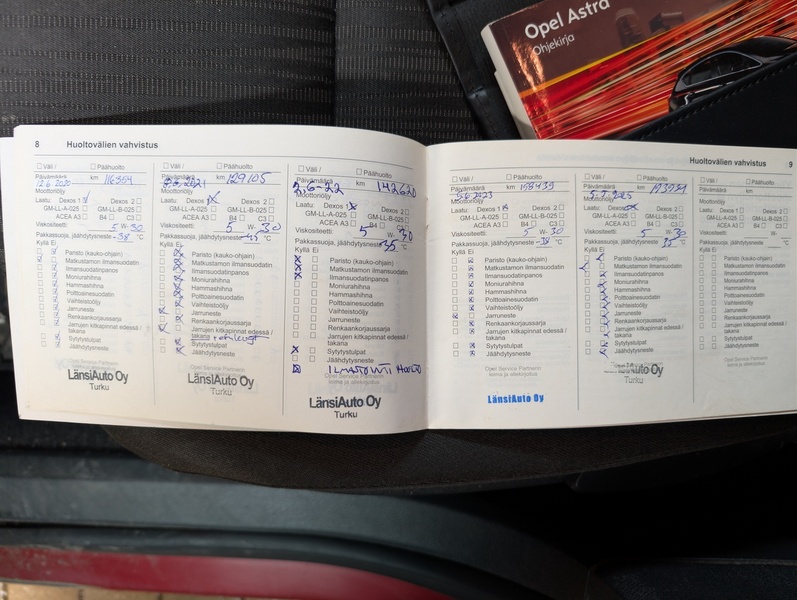 Opel Astra
Ohjekirja
8 Huoltovälien vahvistus
Väli / Päähuolto
Päivämäärä km 116354
12.6.2020
Moottoriöljy
Laatu: Dexos 1 Dexos 2
GM-LL-A-025 GM-LL-B-025
ACEA A3 B4 C3
Viskositeetti 5 W- 30
Pakkassuoja, jäähdytysneste -38 °C
Kyllä Ei
Paristo (kauko-ohjain)
Matkustamon ilmansuodatin
Ilmansuodatinpanos
Moniurahihna
Hammashihna
Polttoainesuodatin
Vaihteistoöljy
Jarruneste
Renkaankorjaussarja
Jarrujen kitkapinnat edessä /
takana
Sytytystulpat
Jäähdytysneste
Opel Service Partnerin
leima ja allekirjoitus
LänsiAuto Oy
Turku
Väli / Päähuolto
Päivämäärä km 129105
Moottoriöljy
Laatu: Dexos 1 Dexos 2
GM-LL-A-025 GM-LL-B-025
ACEA A3 B4 C3
Viskositeetti 5 W- 30
Pakkassuoja, jäähdytysneste °C
Kyllä Ei
Paristo (kauko-ohjain)
Matkustamon ilmansuodatin
Ilmansuodatinpanos
Moniurahihna
Hammashihna
Polttoainesuodatin
Vaihteistoöljy
Jarruneste
Renkaankorjaussarja
Jarrujen kitkapinnat edessä /
takana
Sytytystulpat
Jäähdytysneste
LänsiAuto Oy
Turku
Väli / Päähuolto
Päivämäärä km 142620
Moottoriöljy
Laatu: Dexos 1 Dexos 2
GM-LL-A-025 GM-LL-B-025
ACEA A3 B4 C3
Viskositeetti 5 W- 30
Pakkassuoja, jäähdytysneste -35 °C
Kyllä Ei
Paristo (kauko-ohjain)
Matkustamon ilmansuodatin
Ilmansuodatinpanos
Moniurahihna
Hammashihna
Polttoainesuodatin
Vaihteistoöljy
Jarruneste
Renkaankorjaussarja
Jarrujen kitkapinnat edessä /
takana
Sytytystulpat
Jäähdytysneste
LänsiAuto Oy
Turku
Huoltovälien vahvistus 9
Väli / Päähuolto
Päivämäärä km 158439
Moottoriöljy
Laatu: Dexos 1 Dexos 2
GM-LL-A-025 GM-LL-B-025
ACEA A3 B4 C3
Viskositeetti 5 W- 30
Pakkassuoja, jäähdytysneste -38 °C
Kyllä Ei
Paristo (kauko-ohjain)
Matkustamon ilmansuodatin
Ilmansuodatinpanos
Moniurahihna
Hammashihna
Polttoainesuodatin
Vaihteistoöljy
Jarruneste
Renkaankorjaussarja
Jarrujen kitkapinnat edessä /
takana
Sytytystulpat
Jäähdytysneste
Opel Service Partnerin
leima ja allekirjoitus
LänsiAuto Oy
Väli / Päähuolto
Päivämäärä km
Moottoriöljy
Laatu: Dexos 1 Dexos 2
GM-LL-A-025 GM-LL-B-025
ACEA A3 B4 C3
Viskositeetti 5 W- 30
Pakkassuoja, jäähdytysneste 35 °C
Kyllä Ei
Paristo (kauko-ohjain)
Matkustamon ilmansuodatin
Ilmansuodatinpanos
Moniurahihna
Hammashihna
Polttoainesuodatin
Vaihteistoöljy
Jarruneste
Renkaankorjaussarja
Jarrujen kitkapinnat edessä /
takana
Sytytystulpat
Jäähdytysneste
Auto Oy
Turku
Väli / Päähuolto
Päivämäärä km
Moottoriöljy
Laatu: Dexos 1 Dexos 2
GM-LL-A-025 GM-LL-B-025
ACEA A3 B4 C3
Viskositeetti W-
Pakkassuoja, jäähdytysneste °C
Kyllä Ei
Paristo (kauko-ohjain)
Matkustamon ilmansuodatin
Ilmansuodatinpanos
Moniurahihna
Hammashihna
Polttoainesuodatin
Vaihteistoöljy
Jarruneste
Renkaankorjaussarja
Jarrujen kitkapinnat edessä /
takana
Sytytystulpat
Jäähdytysneste
Opel Service Partnerin
leima ja allekirjoitus